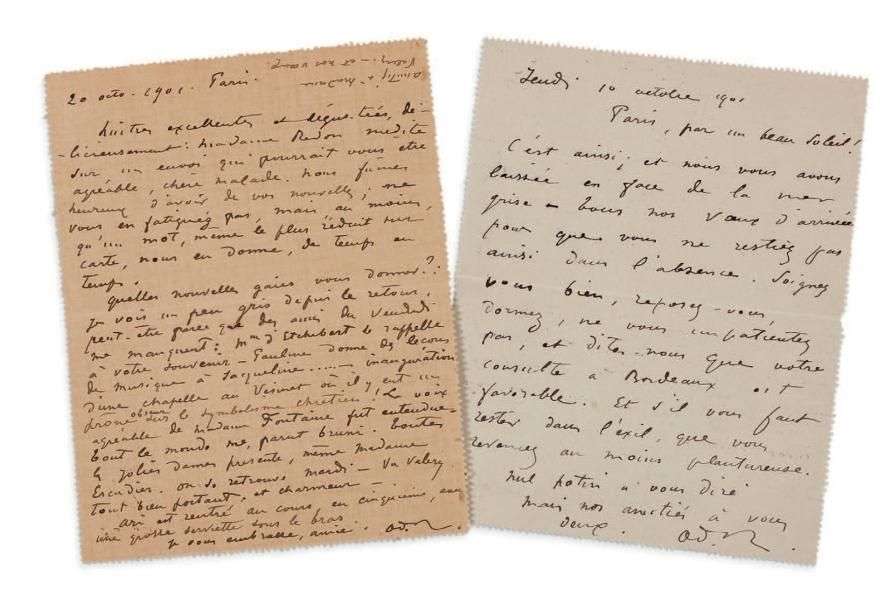 20 octo. 1901. Paris.
huîtres excellentes et dégustées, dé-
-licieusement: madame Redon médite
sur un envoi qui pourrait vous être
agréable, chère malade. Nous fûmes
heureux d'avoir de vos nouvelles; ne
vous en fatiguez pas, mais au moins,
qu'un mot, même le plus réduit sur
carte, nous en donne, de temps en
temps.
quelles nouvelles gaies vous donner?
je vois un peu gris depuis le retour,
peut-être parce que des amis du Vendredi
me manquent: Mme d'Etchebert se rappelle
à votre souvenir - Pauline donne des leçons
de musique à Jacqueline..... - inauguration
d'une chapelle au Vésinet où il y eut un
prône obscur sur le symbolisme chrétien! La voix
agréable de madame Fontaine fut entendue-
tout le monde me parut bruni. toutes
les jolies dames présente, même madame
Escudier. on se retrouve mardi - Vu Valéry
tout bien portant, et charmeur -
ari est rentré au cours, en cinquième, avec
une grosse serviette sous le bras
je vous embrasse, amie. Od. R.
Jeudi 10 octobre 1901
Paris, par un beau soleil!
C'est ainsi; et nous vous avons
laissée en face de la mer
grise - tous nos vœux d'arrivée
pour que vous ne restiez pas
ainsi dans l'absence. Soignez
vous bien, reposez-vous,
dormez, ne vous impatientez
pas, et dites-nous que votre
consulte à Bordeaux est
favorable. Et s'il vous faut
rester dans l'exil, que vous
revenez au moins plantureuse.
nul potin à vous dire
mais nos amitiés à vous
deux. Od. R.